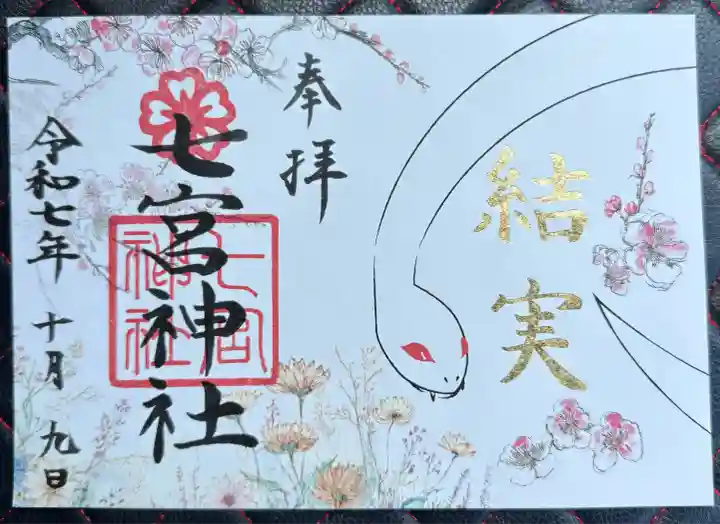 結実
奉拝
七宮神社
七宮
神社
令和七年 十月 九日